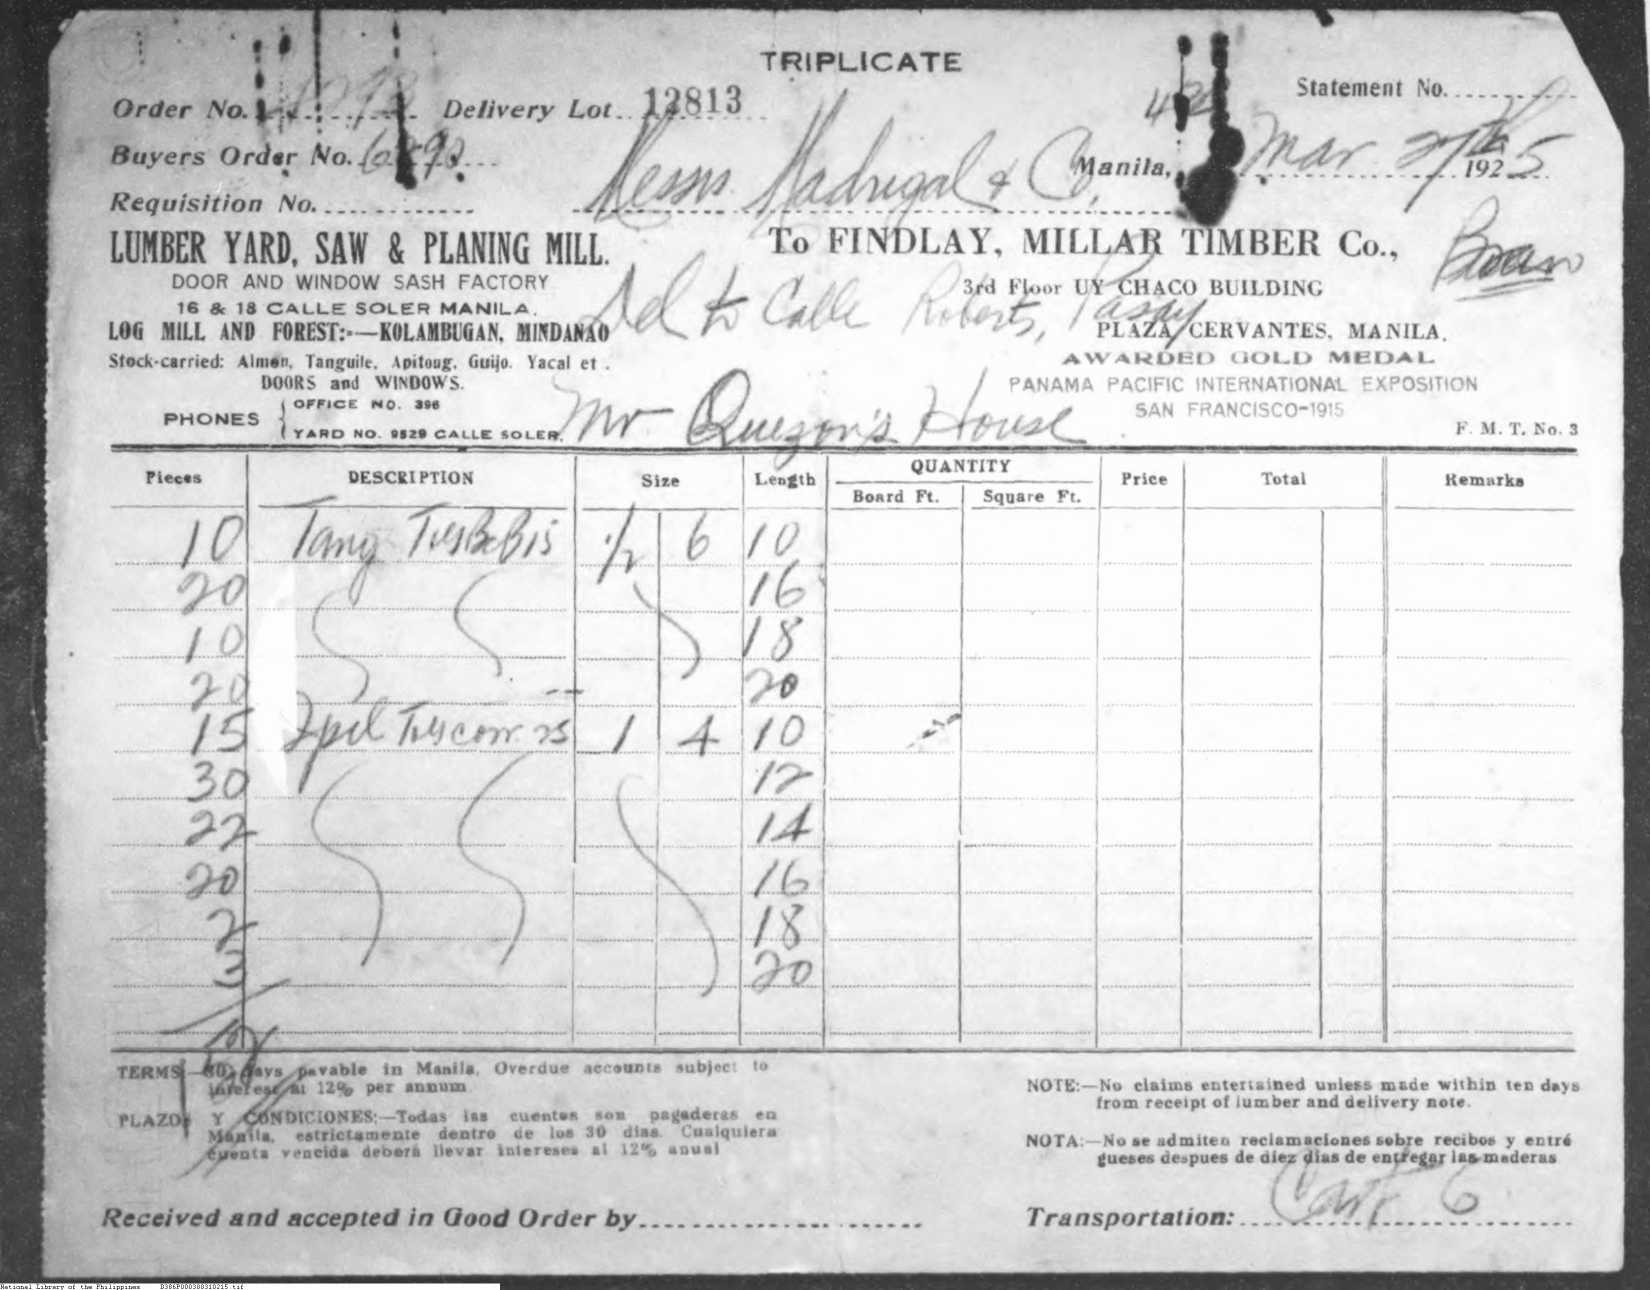 TRIPLICATE
Order No. Delivery Lot 12813
Statement No.
Buyers Order No.
Messrs. Madrigal & Co. Manila, Mar. 27th 1925
Requisition No.
LUMBER YARD, SAW & PLANING MILL.
DOOR AND WINDOW SASH FACTORY
16 & 18 CALLE SOLER MANILA.
LOG MILL AND FOREST:-—KOLAMBUGAN, MINDANAO
Stock-carried: Almon, Tanguile, Apitong, Guijo. Yacal et .
DOORS and WINDOWS.
PHONES { OFFICE NO. 396
YARD NO. 9529 CALLE SOLER.
To FINDLAY, MILLAR TIMBER Co.,
3rd Floor UY CHACO BUILDING
Del to Calle Roberts, Pasay
PLAZA CERVANTES, MANILA.
AWARDED GOLD MEDAL
PANAMA PACIFIC INTERNATIONAL EXPOSITION
SAN FRANCISCO-1915
Mr Quezon's House
F. M. T. No. 3
Pieces DESCRIPTION Size Length QUANTITY Price Total Remarks
Board Ft. Square Ft.
10 Tang 1/2 6 10
20 16
10 18
20 20
15 Ipil 1 4 10
30 12
22 14
20 16
2 18
3 20
TERMS:—30 days payable in Manila. Overdue accounts subject to
interest at 12% per annum
PLAZOS Y CONDICIONES:—Todas las cuentas son pagaderas en
Manila, estrictamente dentro de los 30 dias. Cualquiera
cuenta vencida deberá llevar intereses al 12% anual
NOTE:—No claims entertained unless made within ten days
from receipt of lumber and delivery note.
NOTA:—No se admiten reclamaciones sobre recibos y entré
gueses despues de diez dias de entregar las maderas
Received and accepted in Good Order by
Transportation: Cart 6
National Library of the Philippines B386P000308310215.tif